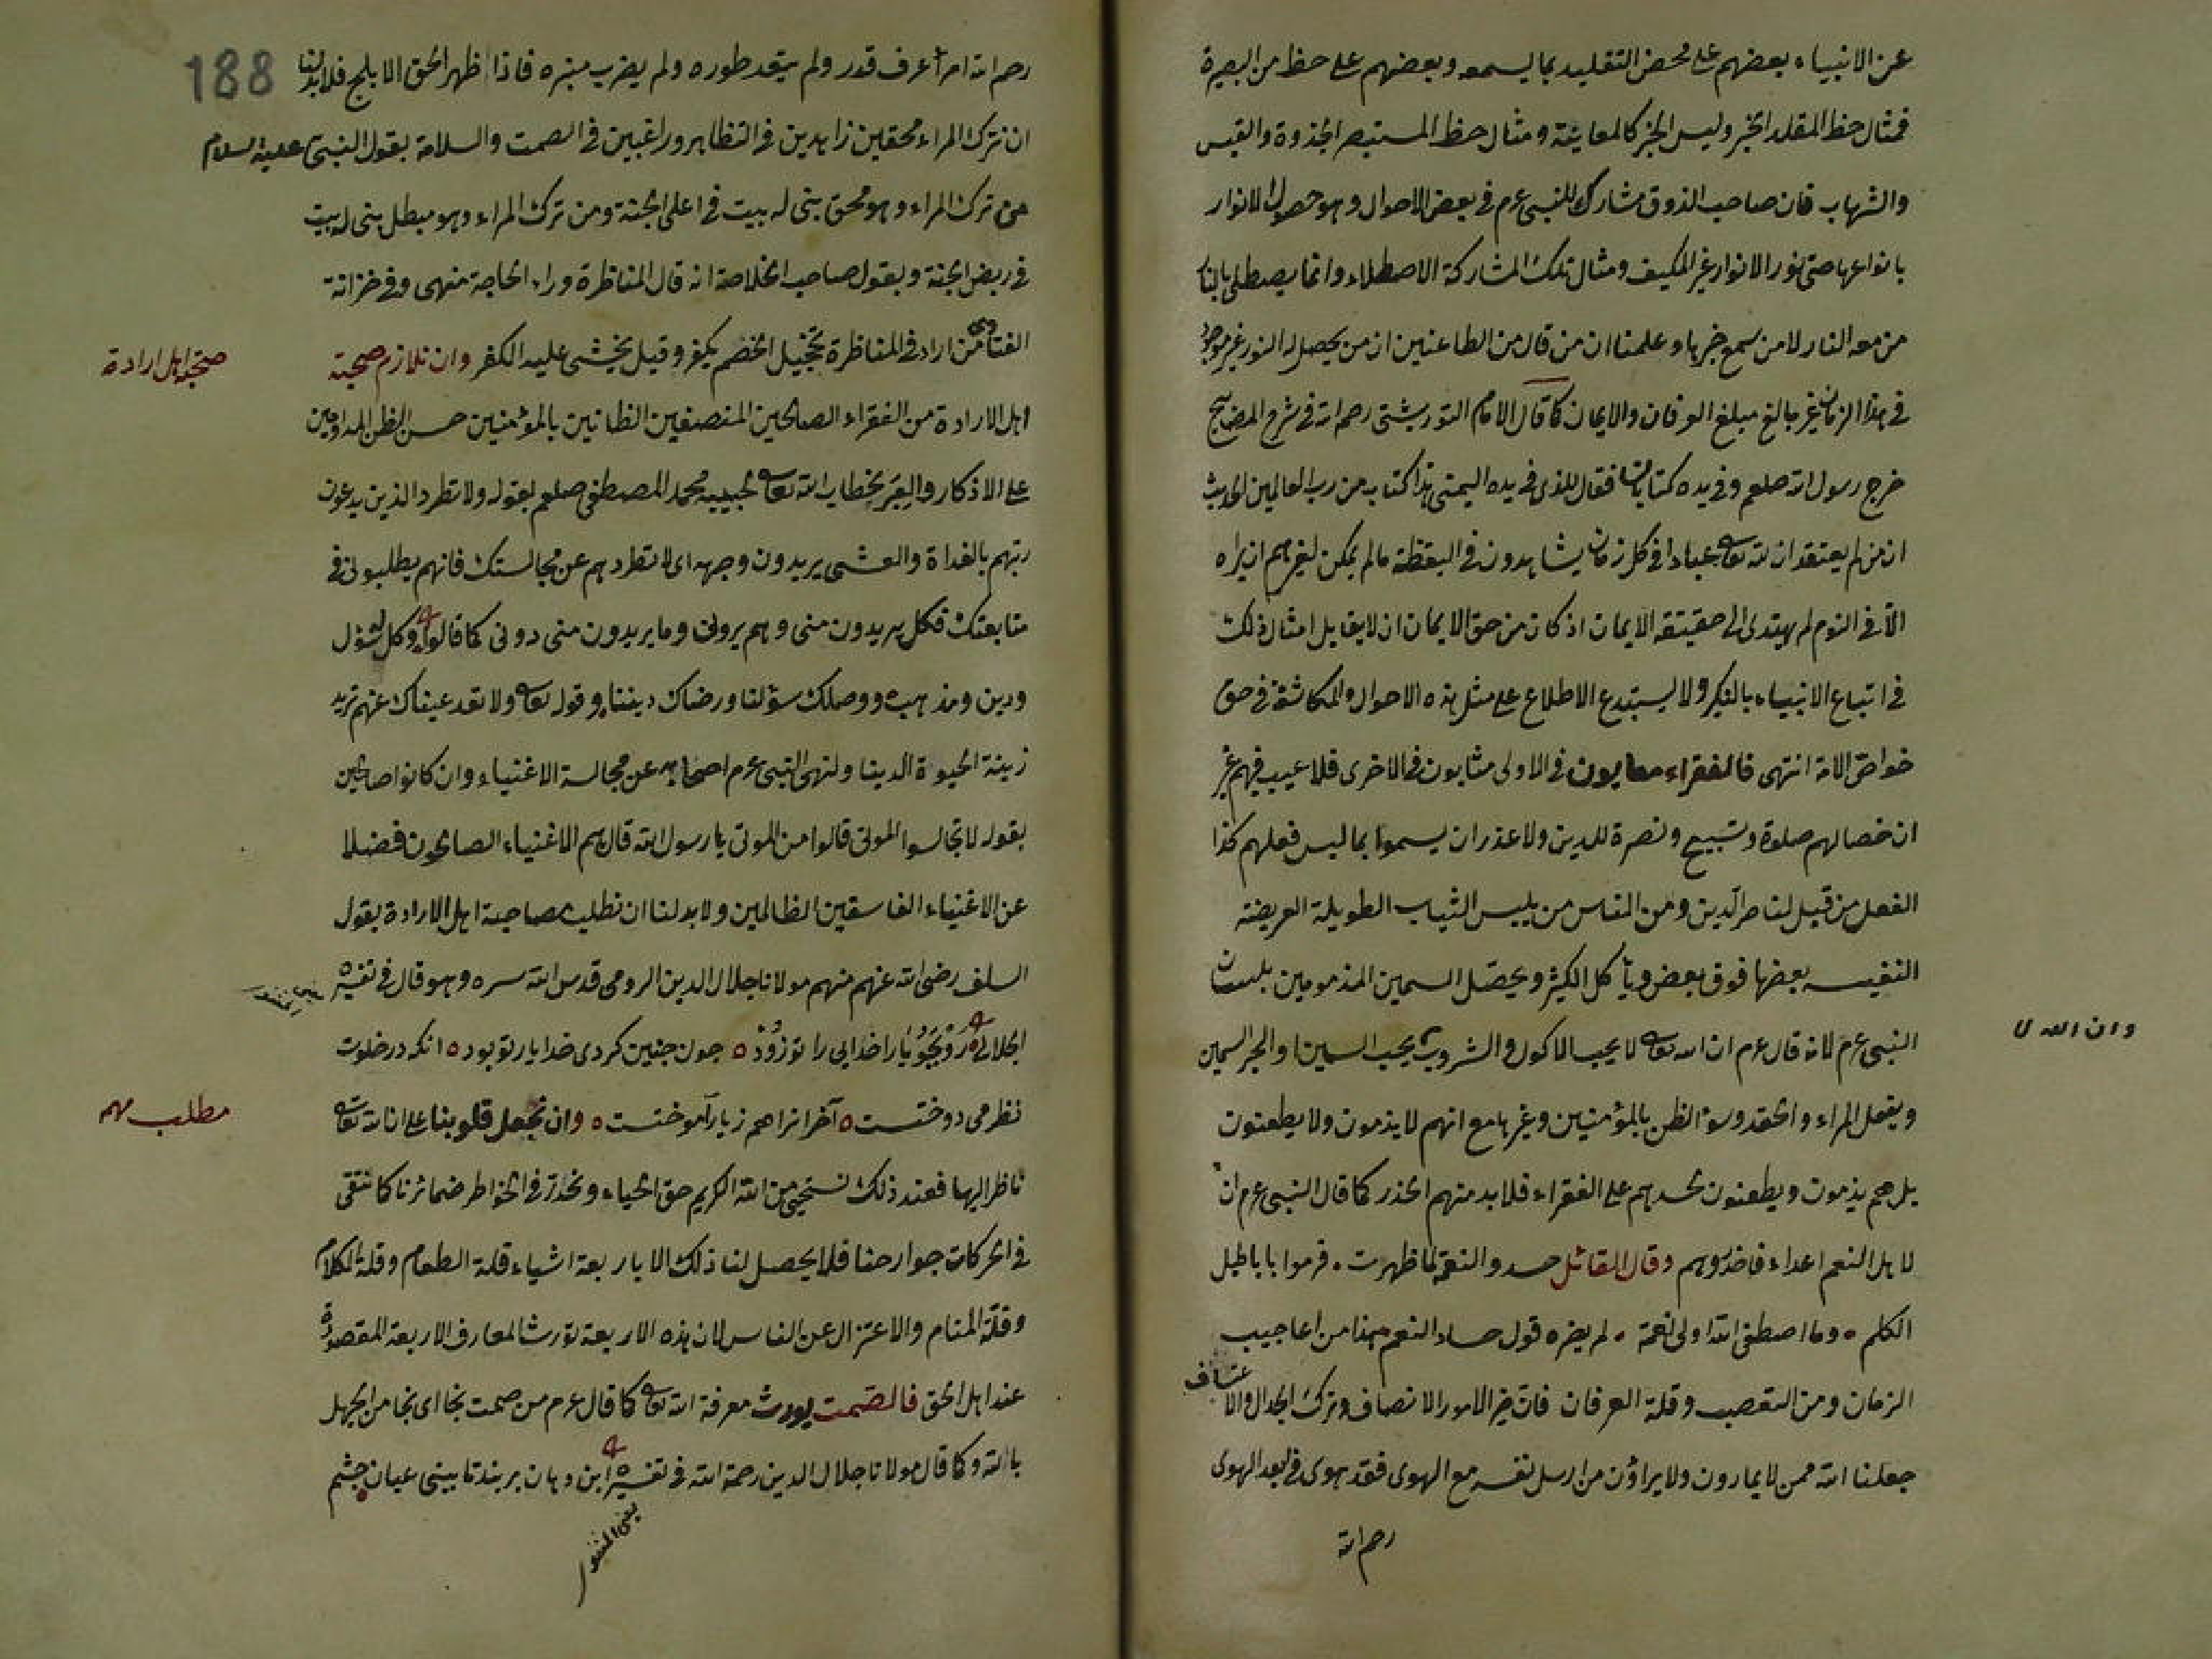 عن الانبياء بعضهم على محض التقليد بما يسمعه وبعضهم على حظ من البصيرة
فمثال حظ المقلد الخبر وليس الخبر كالمعاينة ومثال حظ المستبصر الجذوة والقبس
والشهاب فان صاحب الذوق مشارك للنبى عرم فى بعض الاحوال وهو حصول الانوار
بانواعها حتى نور الانوار غير المكيف ومثال تلك المشاركة الاصطلاء وانما يصطلى بالنار
من معه النار لا من سمع خبرها وعلمنا ان من قال من الطاعنين ان من يحصل له النور غير موجود
فى هذا الزمان غير بالغ مبلغ العرفان والايمان كما قال الامام التوربشتى رحم الله فى شرح المصابيح
خرج رسول الله صلعم وفى يده كتابان فقال للذى فى يده اليمنى هذا كتاب من رب العالمين الحديث
ان من لم يعتقد ان لله تعالى عبادا فى كل زمان يشاهدون فى اليقظة ما لم يمكن لغيرهم ان يراه
الا فى النوم لم يهتدى الى حقيقة الايمان اذ كان من حق الايمان ان لا يقابل امثال ذلك
فى اتباع الانبياء بالنكير ولا يستبدع الاطلاع على مثل هذه الاحوال والمكاشفة فى حق
خواص الامة انتهى فالفقراء معابون فى الاولى مثابون فى الاخرى فلا عيب فيهم غير
ان خصالهم صلوة وتسبيح ونصرة للدين ولا عذر ان يسموا بما ليس فعلهم كذا
الفعل من قبل لناصر الدين ومن الناس من يلبس الثياب الطويلة العريضة
النفيسه بعضها فوق بعض ويأكل الكثير ويحصّل السمين المذمومين بلسان
النبى عرم لانه قال عرم ان الله تعالى لا يحب الاكول والشروب يحب السمين والحبر السمين
وان الله لا
ويفعل المراء والحقد وسوء الظن بالمؤمنين وغيرها مع انهم لا يذمون ولا يطعنون
بل هم يذمون ويطعنون لحسدهم على الفقراء فلا بد منهم الحذر كما قال النبى عرم ان
لاهل النعم اعداء فاحذروهم وقال القائل حسدوا النعم لما ظهرت ٠ فرموا باباطيل
الكلم ٠ وما اصطفى الله اولى نعمة ٠ لم يضره قول حساد النعم هذا من اعاجيب
الزمان ومن التعصب وقلة العرفان فان خير الامور الانصاف وترك الجدال والاعتساف
جعلنا الله ممن لا يمارون ولا يراؤن من ارسل نفسه مع الهوى فقد هوى فى بعد الهوى
رحم الله
188
رحم الله امرأ عرف قدر ولم يتعد طوره ولم يضرب مشبره فاذا ظهر الحق الابلج فلا بد لنا
ان نترك المراء محقين زاهدين فى التظاهر وراغبين فى الصمت والسلامة بقول النبى عليه السلام
من ترك المراء وهو محق بنى له بيت فى اعلى الجنة ومن ترك المراء وهو مبطل بنى له بيت
فى ربض الجنة وبقول صاحب الخلاصة انه قال المناظرة وراء الحاجة منهى وفى خزانة
الفتاوى من اراد فى المناظرة تخجيل الخصم يكفر وقيل يخشى عليه الكفر وان نلازم صحبة
صحبة اهل ارادة
اهل الارادة من الفقراء الصالحين المنصفين الظانين بالمؤمنين حسن الظن المداومين
على الاذكار والعبر بخطاب الله تعالى لحبيبه محمد المصطفى صلعم بقوله ولا تطرد الذين يدعون
ربهم بالغداة والعشى يريدون وجهه اى لا تطردهم عن مجالستك فانهم يطلبونى فى
متابعتك فكل يريدون منى وهم يرونى وما يريدون منى دونى كما قالوا وكل له سؤل
ودين ومذهب ووصلك سؤلنا ورضاك ديننا وقوله تعالى ولا تعد عيناك عنهم تريد
زينة الحيوة الدينا ولنهى النبى عرم اصحابه عن مجالسة الاغنياء وان كانوا صالحين
بقوله لا تجالسوا الموتى قالوا من الموتى يا رسول الله قال هم الاغنياء الصالحون فضلا
عن الاغنياء الفاسقين الظالمين ولا بد لنا ان نطلب مصاحبة اهل الارادة بقول
السلف رضى الله عنهم منهم مولانا جلال الدين الرومى قدس الله سره وهو قال فى تفسيره
الجلالى رَوْ بَجُو يَار خدايى را تو زُودْ ٥ جون جنين كردى خدا يار تو بود ٥ انكه در خلوت
نظر مى دوختست ٥ آخر انرا هم ز يار آموختست ٥ وان نجعل قلوبنا على ان الله تعالى
مطلب مهم
ناظر اليها فعند ذلك نستحيى من الله الكريم حق الحياء ونحذر فى الخواطر ضمائرنا كما نتقى
فى الحركات جوارحنا فلا يحصل لنا ذلك الا باربعة اشياء قلة الطعام وقلة الكلام
وقلة المنام والاعتزال عن الناس لان هذه الاربعة تورث المعارف الاربعة المقصودة
عند اهل الحق فالصَمت يورث معرفة الله تعالى كما قال عرم من صمت نجا اى نجا من الجهل
بالله وكما قال مولانا جلال الدين رحمة الله فى تفسيره اين دهان بر بند تا بينى عيان چشم
يعنى المثنوى